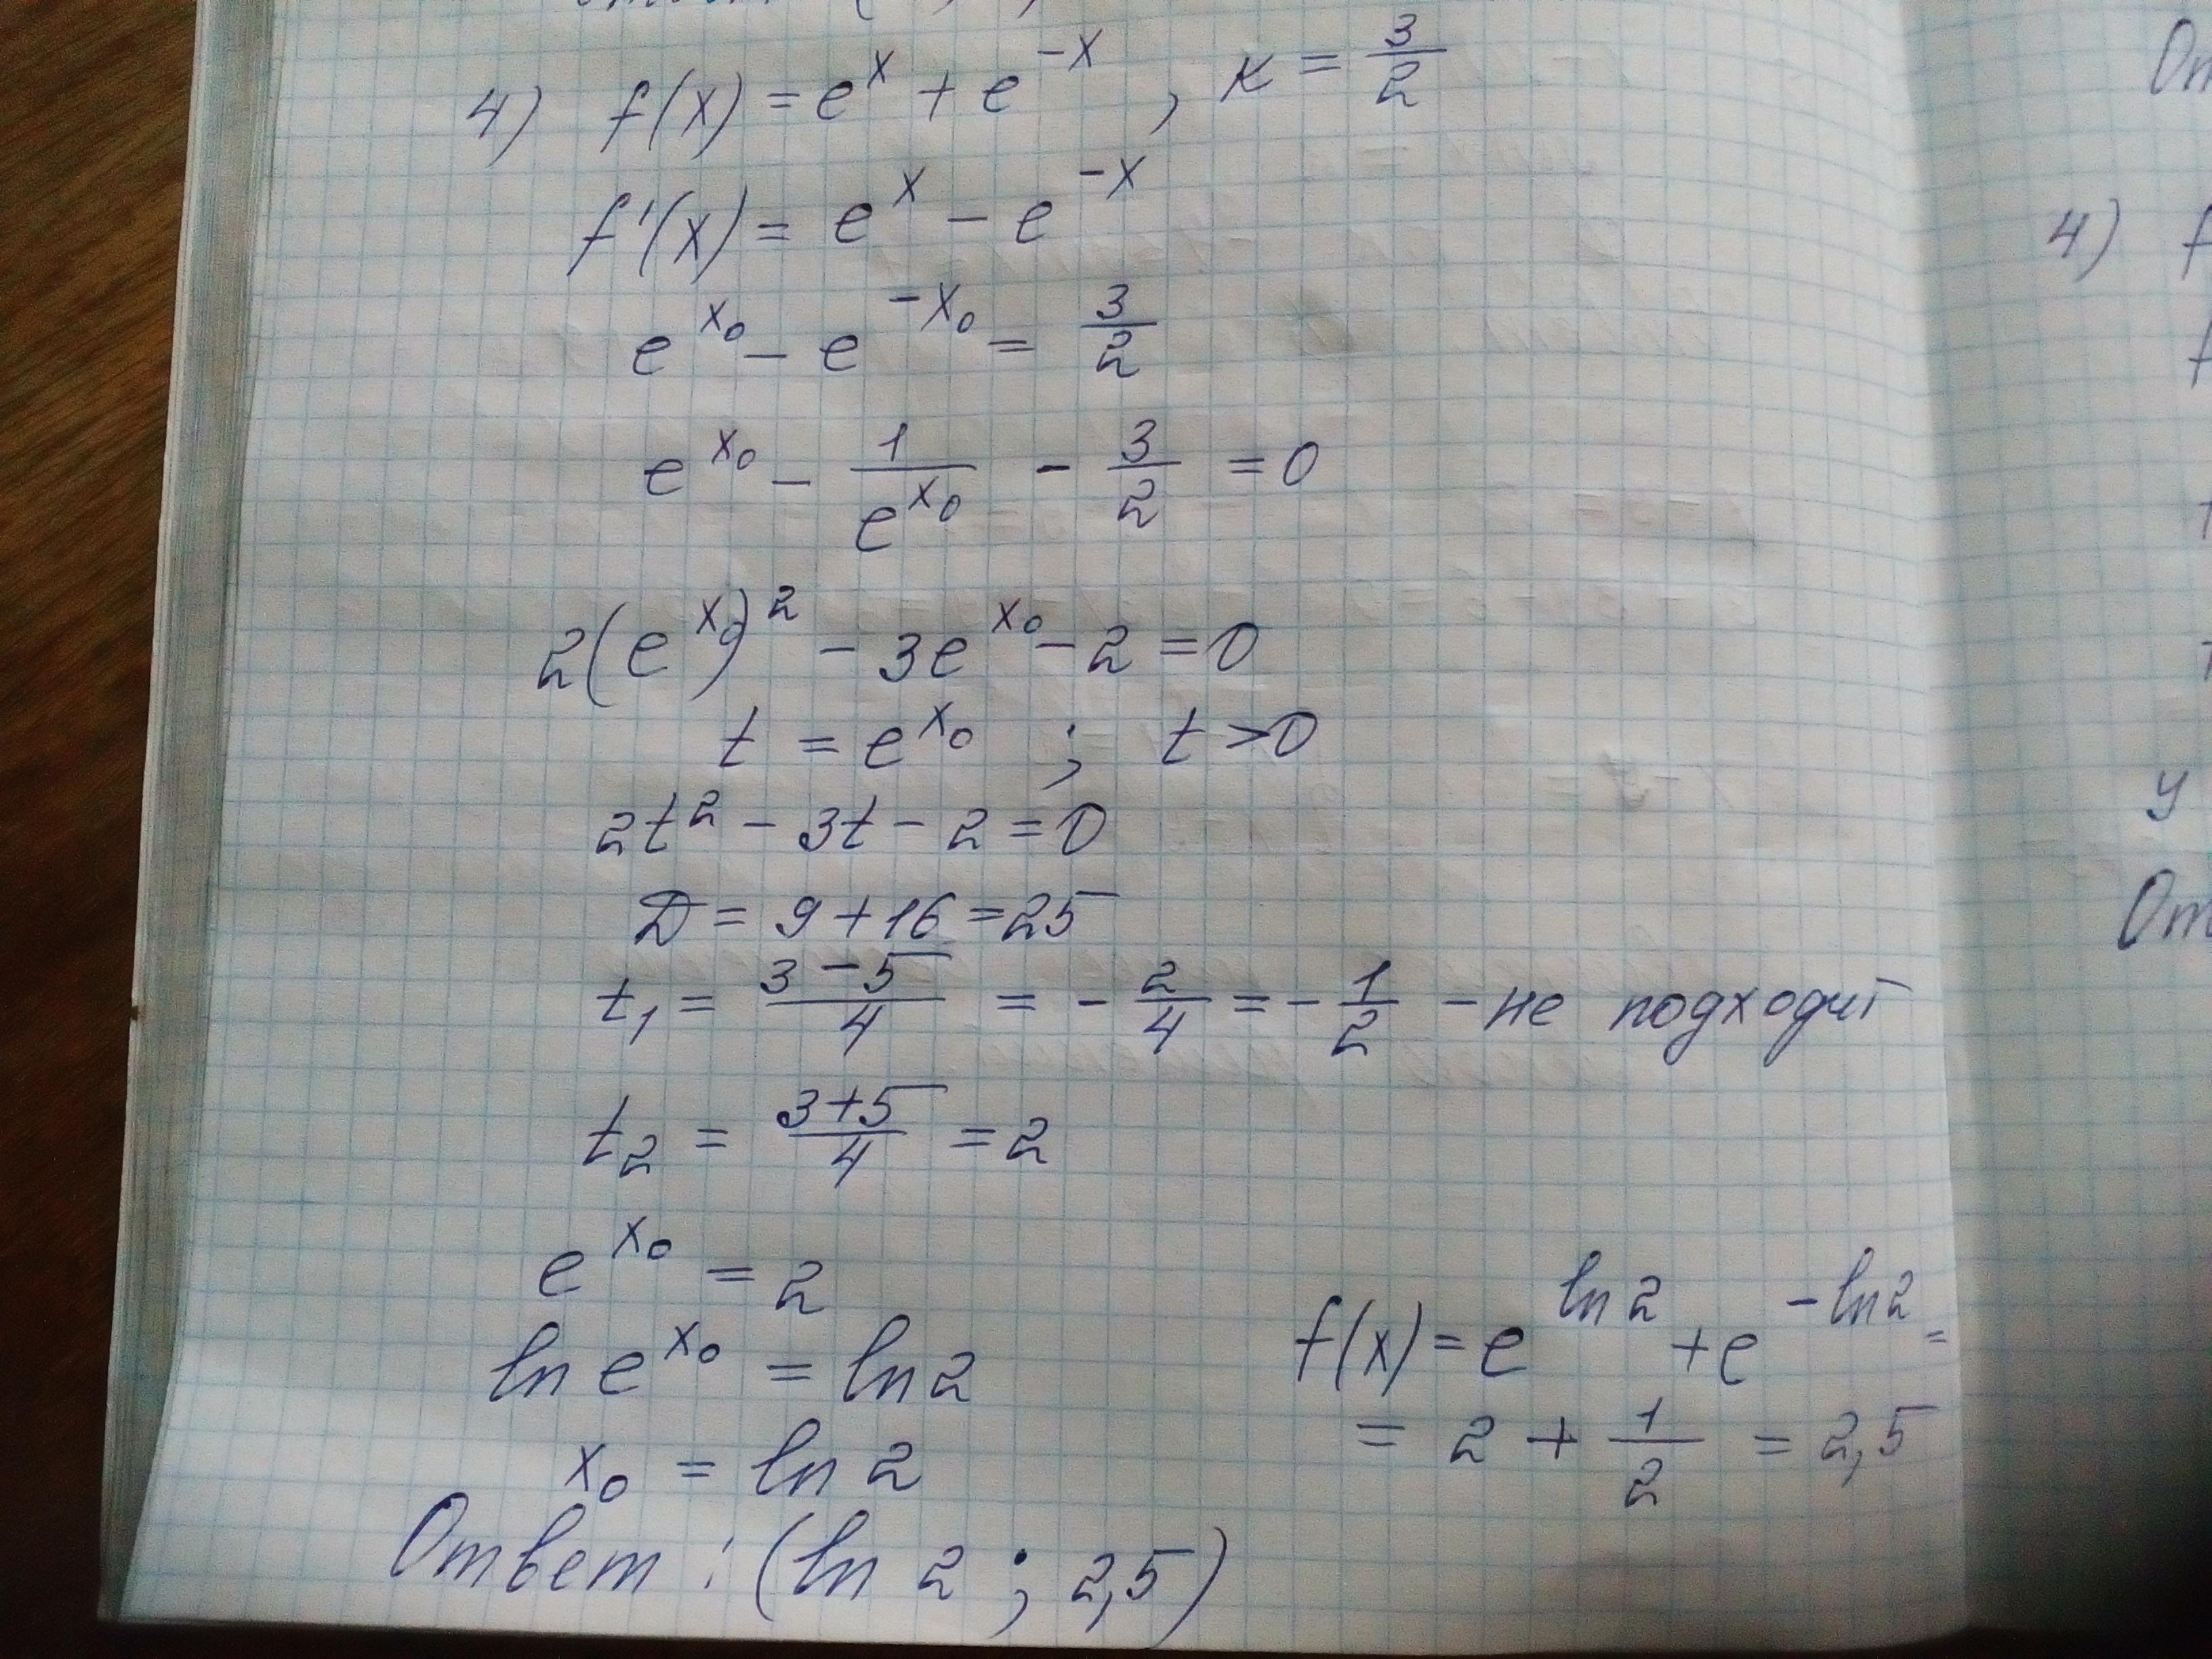 4) f(x) = e^x + e^{-x}, к = 3/2
f'(x) = e^x - e^{-x}
e^{x₀} - e^{-x₀} = 3/2
e^{x₀} - 1/e^{x₀} - 3/2 = 0
2(e^{x₀})² - 3e^{x₀} - 2 = 0
t = e^{x₀} ; t > 0
2t² - 3t - 2 = 0
D = 9 + 16 = 25
t₁ = (3 - 5)/4 = - 2/4 = - 1/2 - не подходит
t₂ = (3+5)/4 = 2
e^{x₀} = 2
ln e^{x₀} = ln 2
x₀ = ln 2
f(x) = e^{ln 2} + e^{-ln 2} =
= 2 + 1/2 = 2,5
Ответ : (ln 2 ; 2,5)
4) f
f
y
От